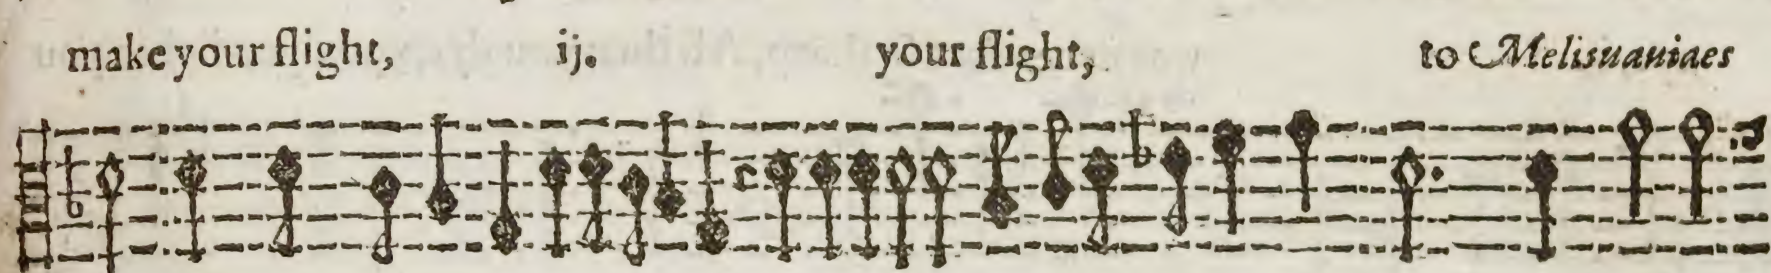 make your flight, ij. your flight, to Melisuauiaes